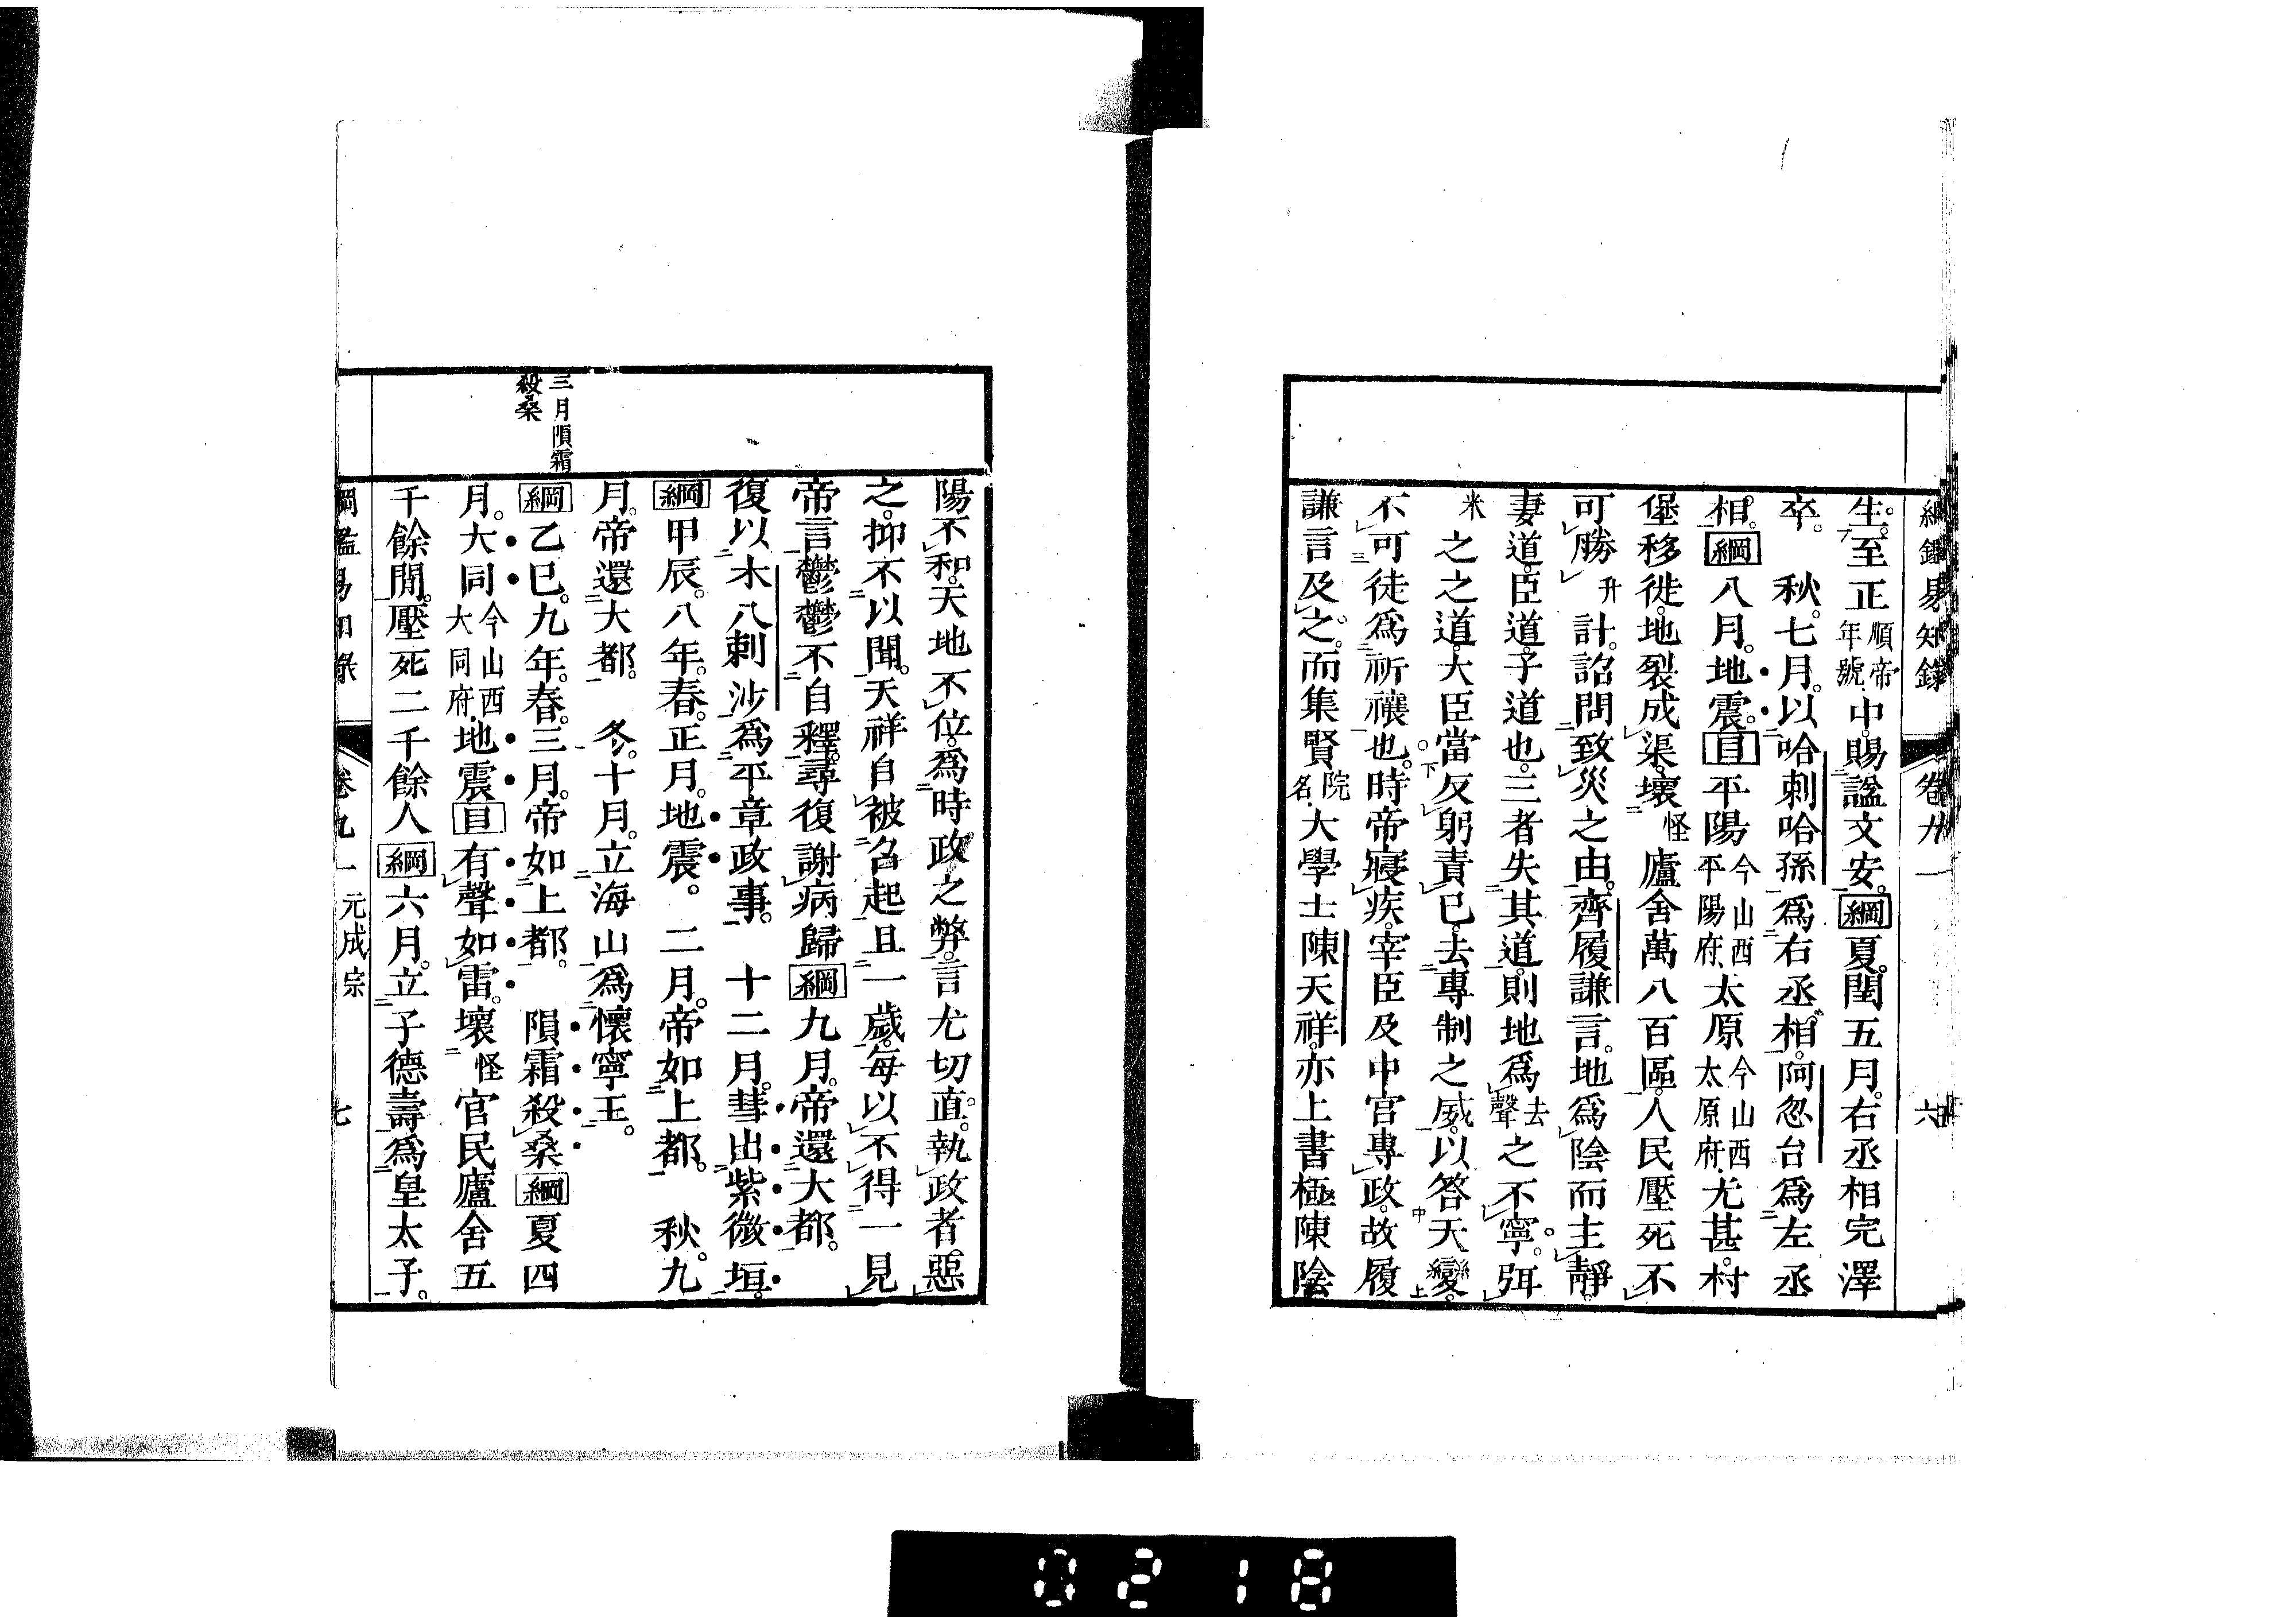 綱鑑易知錄 卷九一 六
生。至正順帝年號中。賜諡文安。綱夏。閏五月。右丞相完澤
卒。 秋。七月。以哈剌哈孫爲右丞相。阿忽台爲左丞
相。綱八月。地震。目平陽今山西平陽府、太原今山西太原府、尤甚。村
堡移徙。地裂成渠。壞怪廬舍萬八百區。人民壓死不
可勝升計。詔問致災之由。齊履謙言。地爲陰而主靜。
妻道。臣道。子道也。三者失其道。則地爲去聲之不寧。弭
米之之道。大臣當反躬責己。去專制之威。以答天變。
不可徒爲祈禳也。時帝寢疾。宰臣及中宮專政。故履
謙言及之。而集賢院名大學士陳天祥。亦上書極陳陰
陽不和。天地不位。爲時政之弊。言尤切直。執政者惡
之。抑不以聞。天祥自被召起且一歲。每以不得一見
帝言鬱鬱不自釋。尋復謝病歸綱九月。帝還大都。
復以木八剌沙爲平章政事。 十二月。彗出紫微垣。
綱甲辰。八年。春。正月。地震。 二月。帝如上都。 秋。九
月。帝還大都。 冬。十月。立海山爲懷寧王。
三月隕霜
殺桑
綱乙巳。九年。春。三月。帝如上都。 隕霜殺桑綱夏四
月。大同今山西大同府。地震目有聲如雷。壞怪官民廬舍五
千餘間。壓死二千餘人綱六月。立子德壽爲皇太子。
綱鑑易知錄 卷九一 元成宗 七
0218